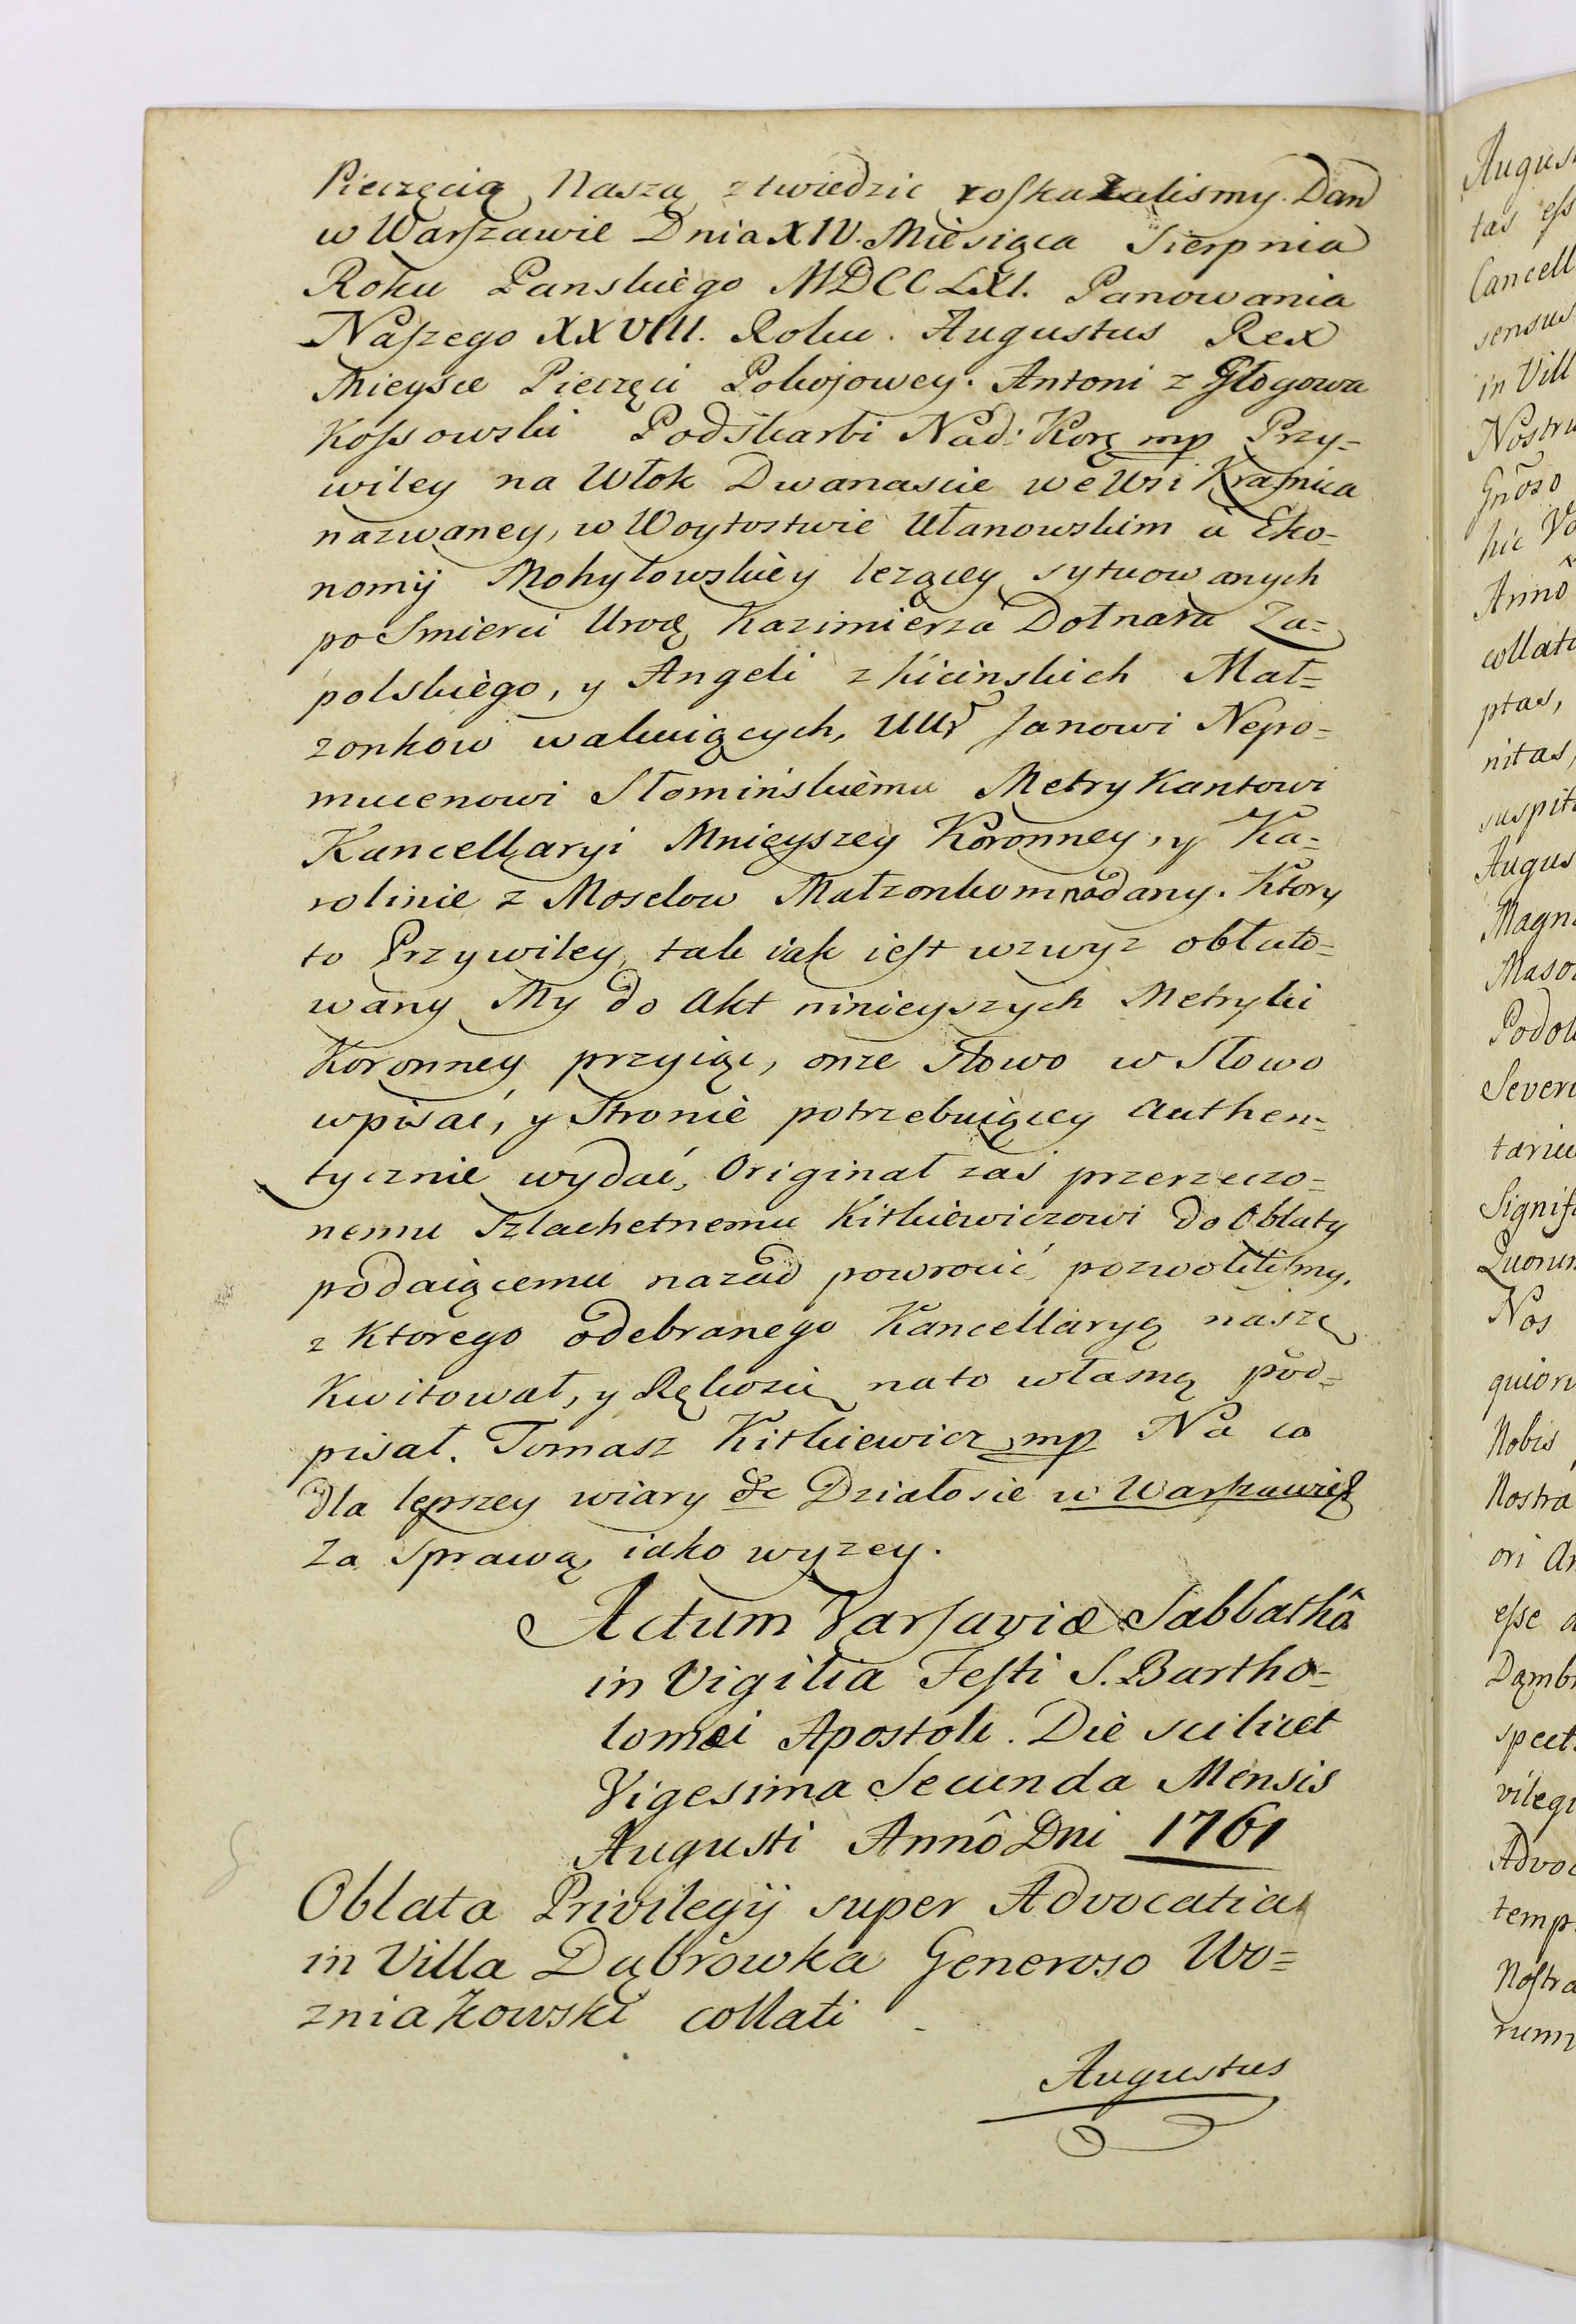 Pieczęcią Naszą ztwiedzic roskazalismy. Dan
w Warszawie Dnia XIV. Miesiąca Sierpnia
Roku Panskiego MDCCLXI. Panowania
Naszego XXVIII. Roku. Augustus Rex
Mieysce Pieczęci Pokojowey. Antoni z Głogowa
Kossowski Podskarbi Nad: Korę mp Przy=
wiley na Włok Dwanascie we Wsi Krasnica
nazwaney, w Woytostwie Ułanowskim a Eko=
nomij Mohyłowskiey lezącey sytuowanych
po Smierci Urodę Kazimierza Dołnara Za=
polskiego, y Angeli z Kicinskich Mał=
zonkow wakuiących, UUr Janowi Nepo=
mucenowi Słomińskiemu Metrykantowi
Kancellaryi Mnieyszey Koronney, y Ka=
rolinie z Moselow Małzonkom nadany. Ktory
to Przywiley, tak iak iest wzwyz obłato=
wany My do Akt ninieyszych Metryki
Koronney przyiąc, onze Słowo w Słowo
wpisać, y Stronie potrzebuiącey authen=
tycznie wydać, Originał zaś przerzeczo=
nemu Szlachetnemu Kitkiewiczowi do Oblaty
podaiącemu nazad powrocić pozwolilismy,
z Ktorego odebranego Kancellaryą naszę
Kwitował, y Ręką swą na to własną pod=
pisał. Tomasz Kitkiewicz mp Na co
dla lepszey wiary &c Działo sie w Warszawie
Za Sprawą iako wyzey.
Actum Varsaviæ Sabbathô
in Vigilia Festi S. Bartho=
lomæi Apostoli. Die scilicet
Vigesima Secunda Mensis
Augusti Annô Dni 1761
Oblata Privilegij super Advocatia
in Villa Dąbrowka Generoso Wo=
zniakowski collati
Augustus